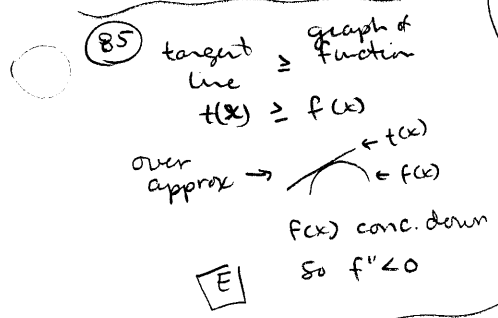 85
tangent line ≥ graph of function
t(x) ≥ f(x)
over approx →
← t(x)
← f(x)
f(x) conc. down
So f" < 0
E